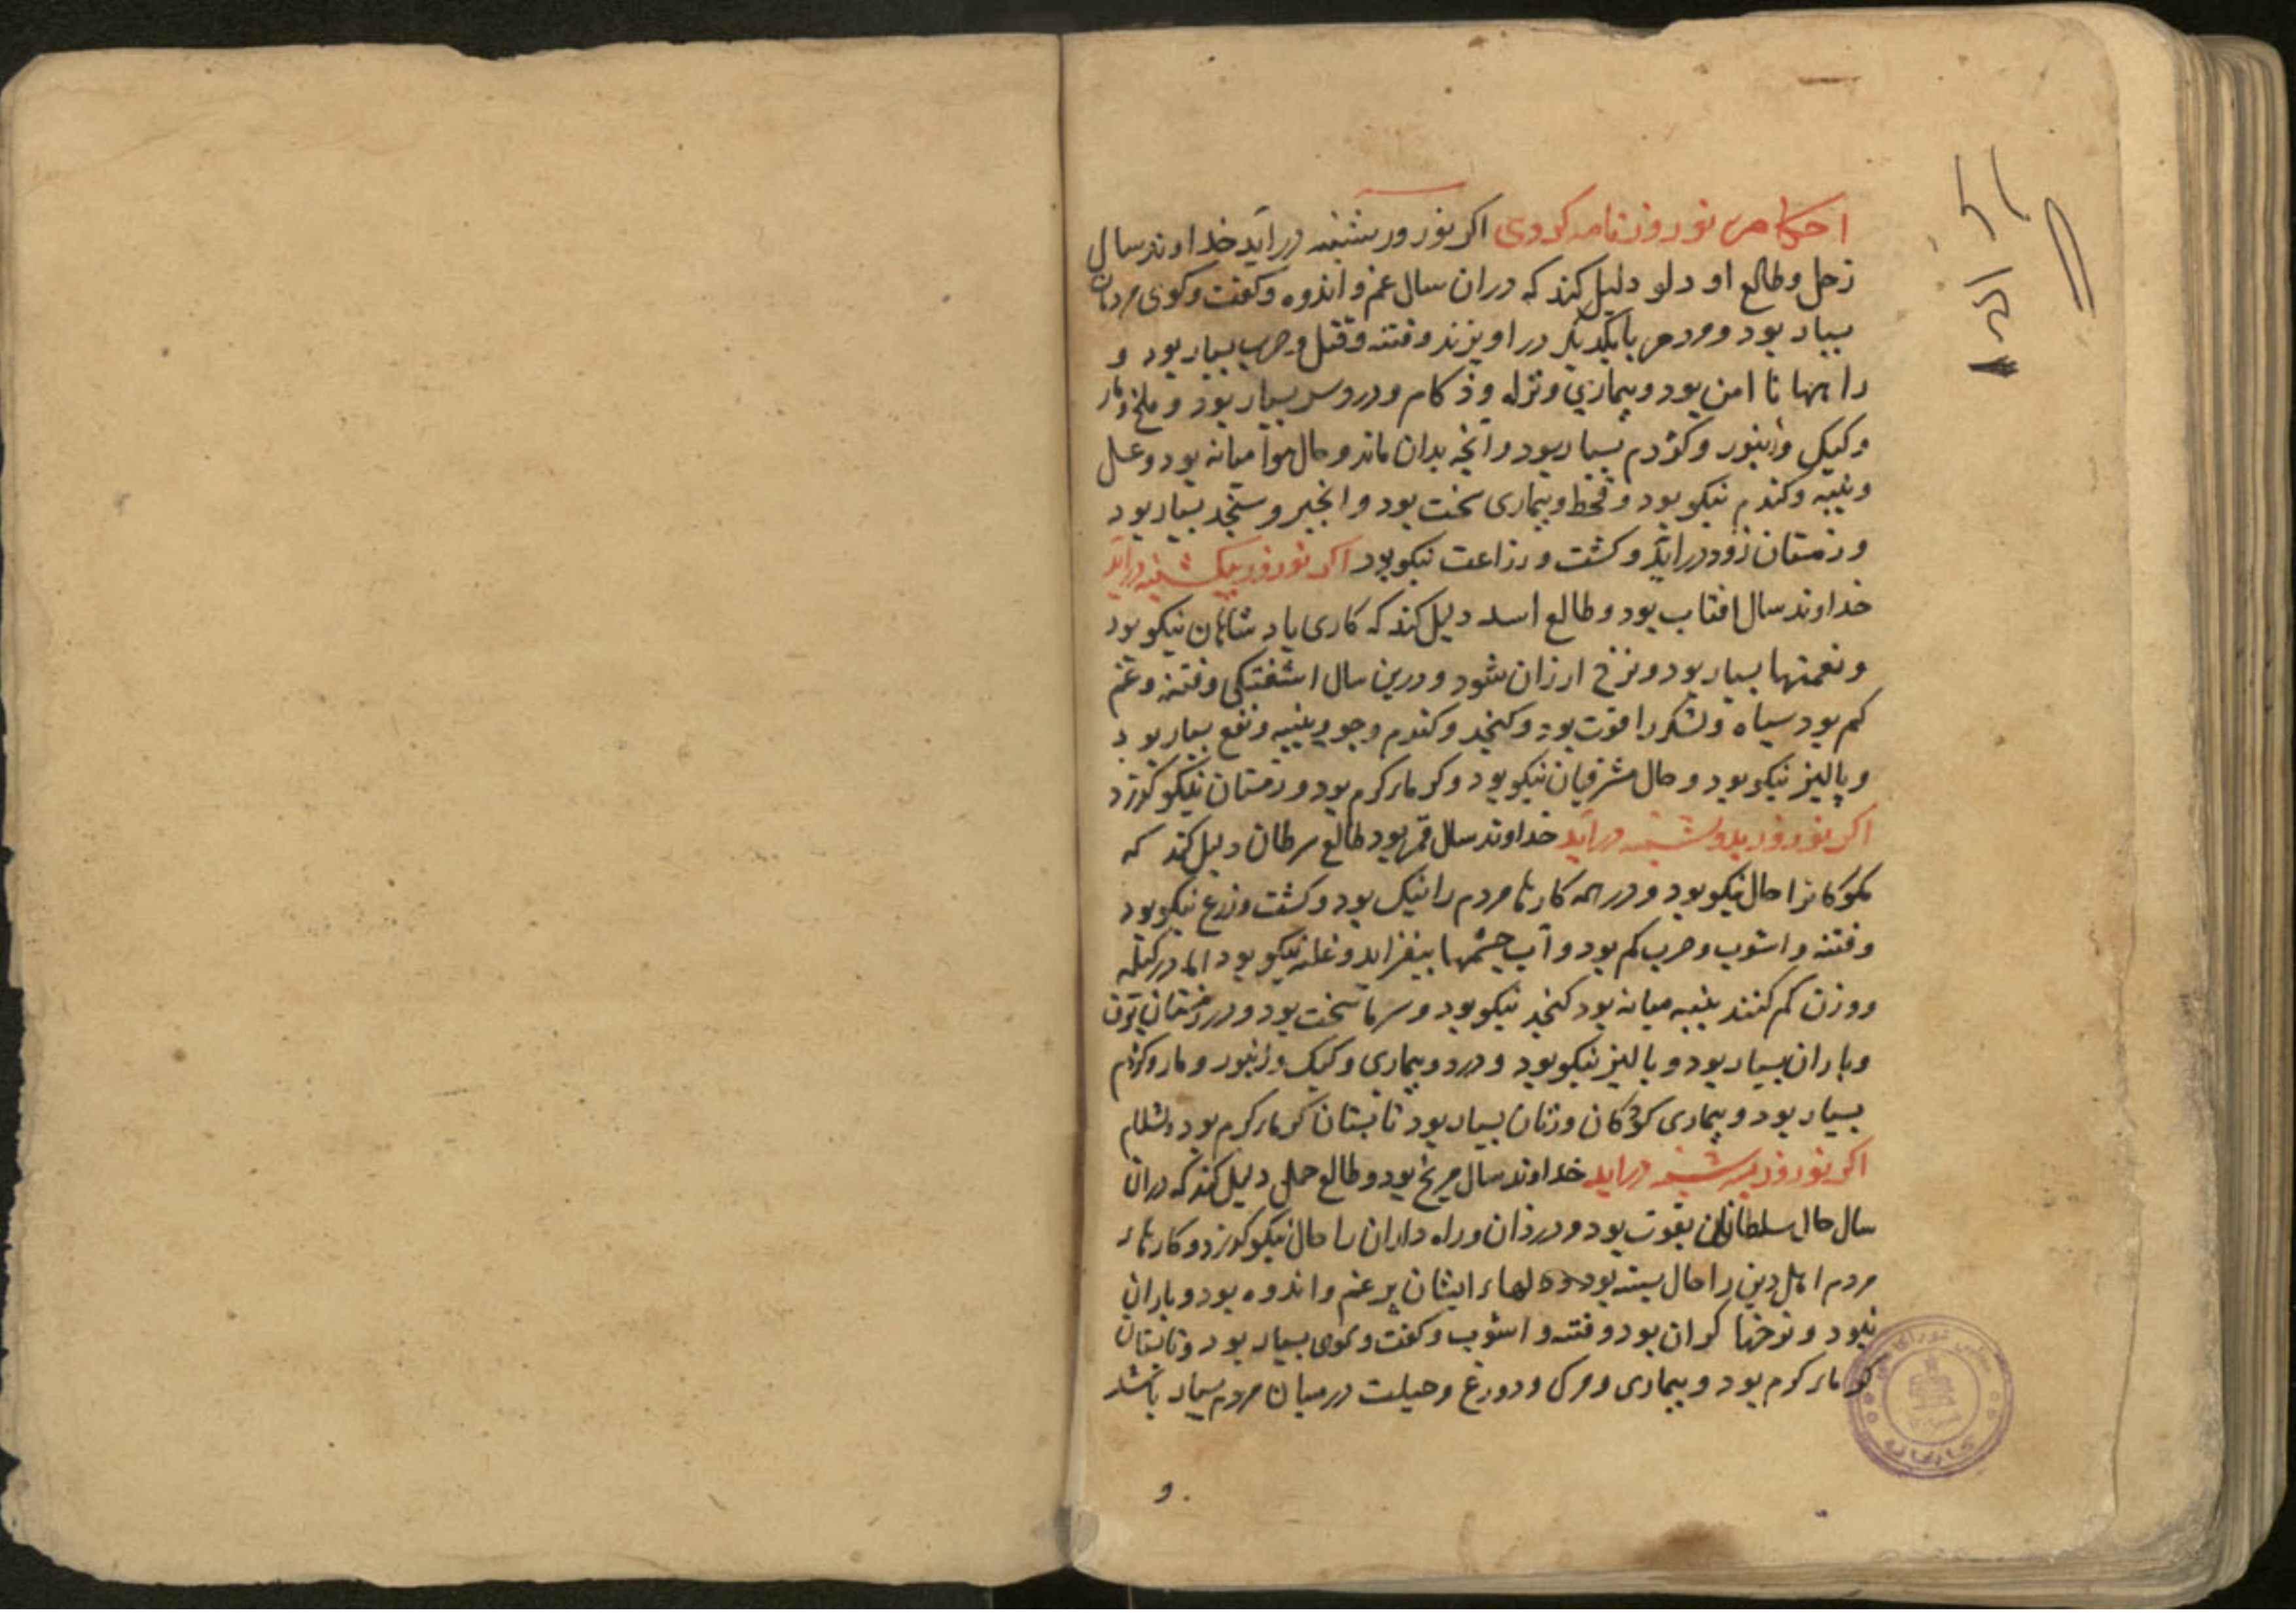 احکام نوروزنامه کردی اکر نوروز بشنبه درآید خداوند سال
زحل و طالع او دلو دلیل کند که دران سال غم و اندوه و کفت وکوی مردمان
بسیار بود و مردم با یکدیکر در اویزند و فتنه و قتل و حرب بسیار بود و
راهها نا امن بود و بیماری و نزله و ذکام و دردسر بسیار بود و ملخ و مار
و کیک و زنبور و کژدم بسیار بود و آنچه بدان ماند و حال هوا میانه بود و عسل
و پنبه و کندم نیکو بود و قحط و بیماری سخت بود و انجیر و سنجد بسیار بود
و زمستان زود درآید و کشت و زراعت نیکو بود اکر نوروز بیکشنبه دراید
خداوند سال افتاب بود و طالع اسد دلیل کند که کاری پادشاهان نیکو بود
و نعمتها بسیار بود و نرخ ارزان شود و درین سال اشفتکی و فتنه و غم
کم بود سپاه و لشکر را قوت بود و کنجد و کندم و جو و پنبه و نفع بسیار بود
و پالیز نیکو بود و حال مشرقیان نیکو بود و کرماء کرم بود و زمستان نیکو کذرد
اکر نوروز بدوشنبه درآید خداوند سال قمر بود طالع سرطان دلیل کند که
ملوکانرا حال نیکو بود و در همه کارها مردم را نیک بود و کشت و زرع نیکو بود
و فتنه و اشوب و حرب کم بود و آب چشمها بیفزاید و غله نیکو بود اما در کیله
و وزن کم کنند پنبه میانه بود کنجد نیکو بود و سرما سخت بود و در زمستان برف
و باران بسیار بود و پالیز نیکو بود و درد و بیماری و کیک و زنبور و مار و کژدم
بسیار بود و بیماری کودکان و زنان بسیار بود تابستان کرماء کرم بود
اکر نوروز بسه شنبه دراید خداوند سال مریخ بود و طالع حمل دلیل کند که دران
سال حال سلطانان بقوت بود و دردزان و راه داران را حال نیکو کذرد و کارهاء
مردم اهل دین را حال بسته بود و دلهاء ایشان پر غم و اندوه بود و باران
نبود و نرخها کران بود و فتنه و اشوب و کفت و کوی بسیار بود و تابستان
کرماء کرم بود و بیماری و مرک و دورغ و حیلت در میان مردم بسیار باشد
و